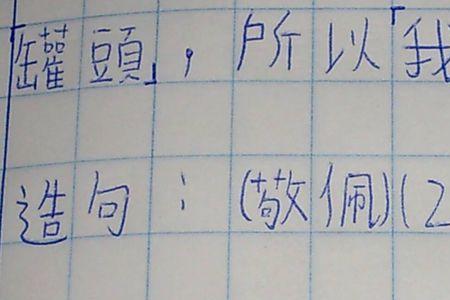 「罐頭」，所以「我
造句：(敬佩)(2